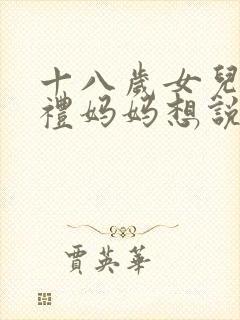 十八歲女兒
禮媽媽想說
賈英華